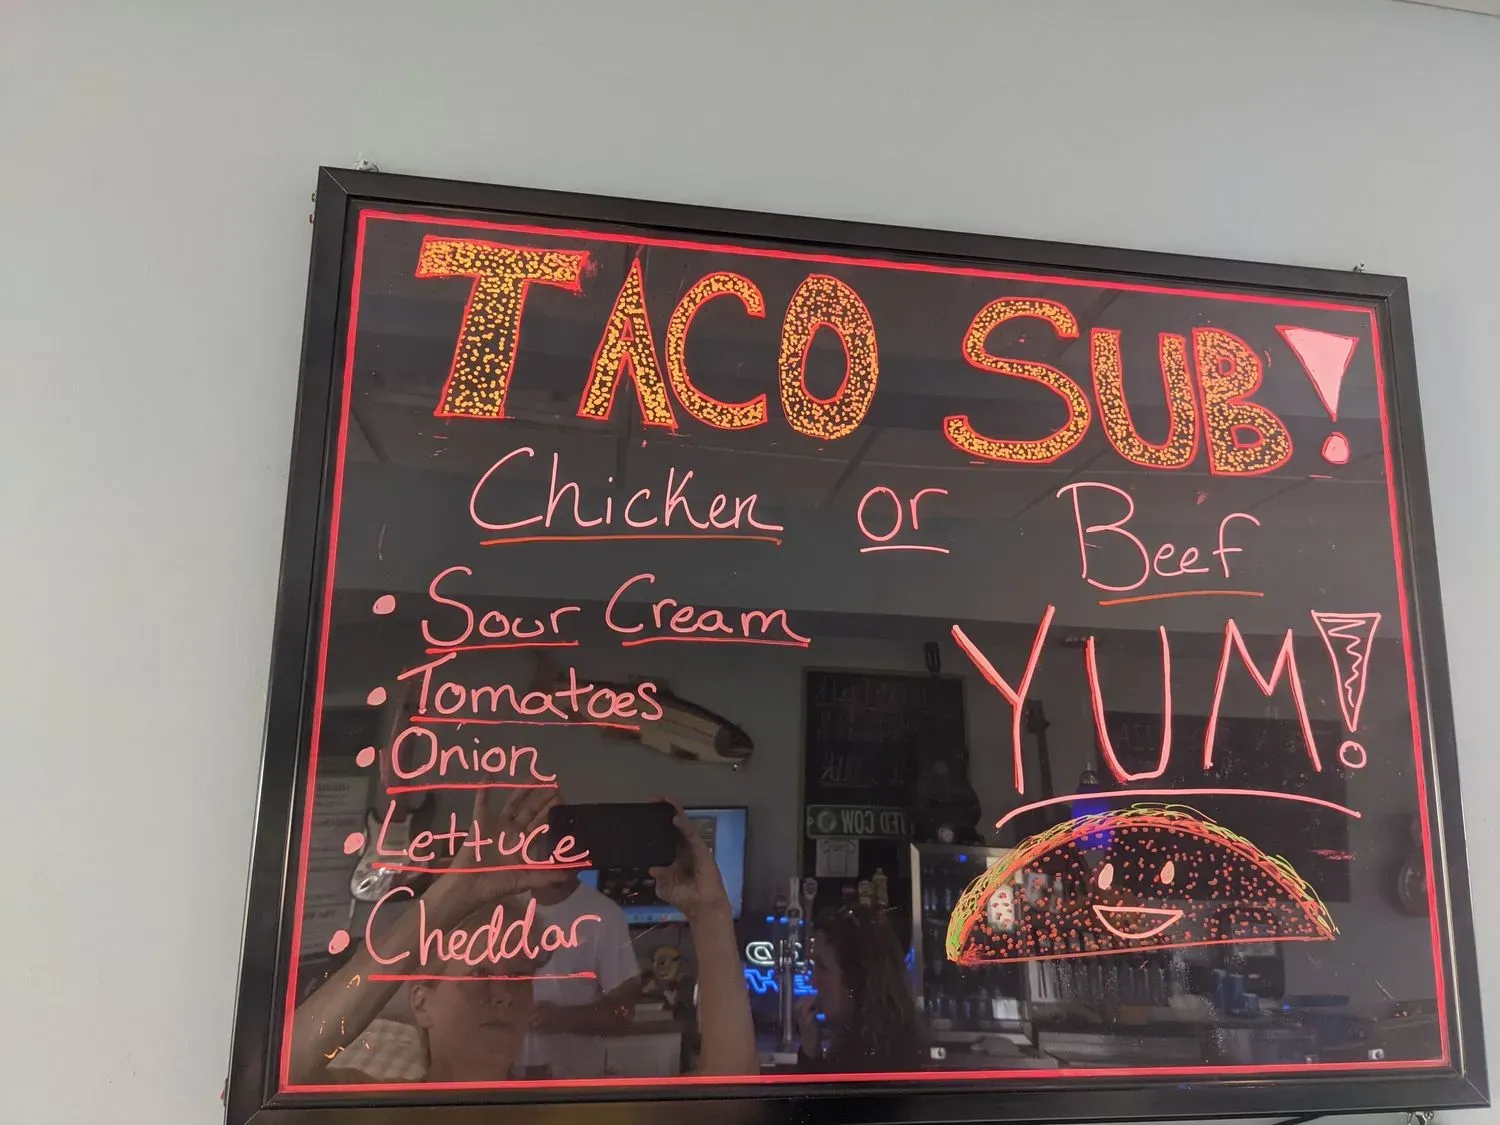 TACO SUB!
Chicken or Beef
• Sour Cream
• Tomatoes
• Onion
• Lettuce
• Cheddar
YUM!